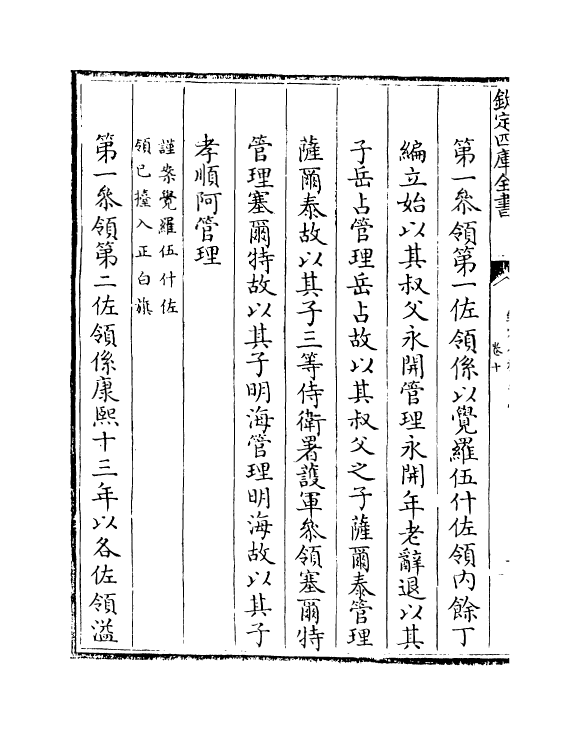 欽定四庫全書
卷十
第一叅領第一佐領係以覺羅伍什佐領内餘丁
編立始以其叔父永開管理永開年老辭退以其
子岳占管理岳占故以其叔父之子薩爾泰管理
薩爾泰故以其子三等侍衛署護軍叅領塞爾特
管理塞爾特故以其子明海管理明海故以其子
孝順阿管理
謹案覺羅伍什佐
領已擡入正白旗
第一叅領第二佐領係康熙十三年以各佐領溢